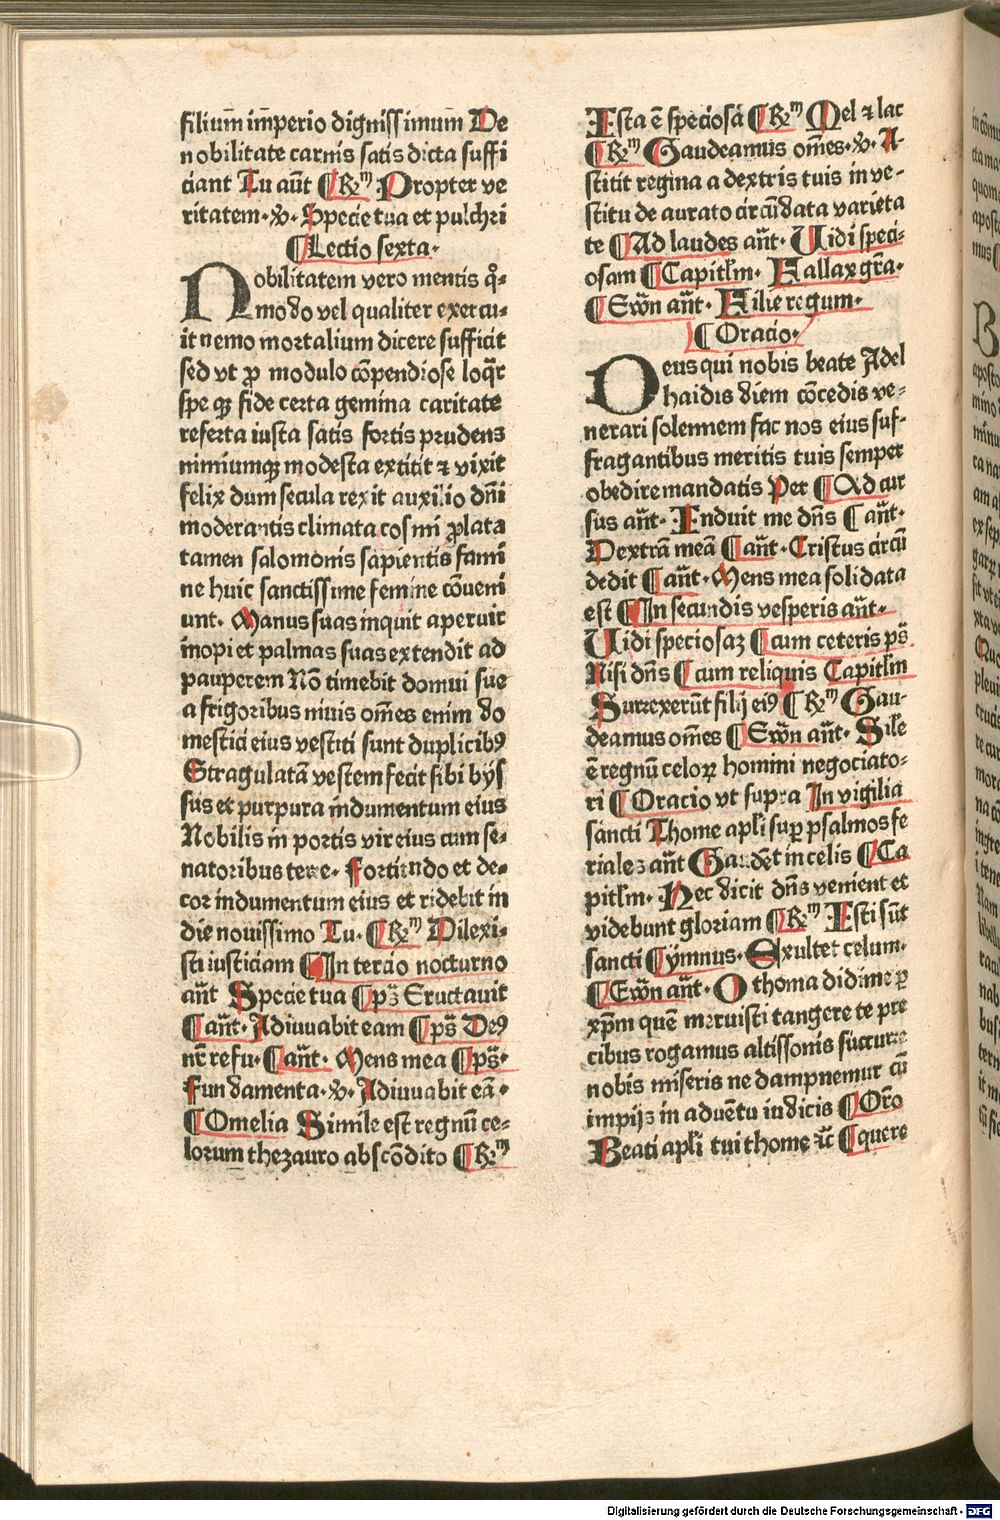 filium̄ im̄perio digniſſimum̄ De
nobilitate carnis ſatis dicta ſuffi
ciant Tu aūt ¶ Rᵐ Propter ve
ritatem · v̶ · Specie tua et pulchri
¶ Lectio ſexta ·
Nobilitatem vero mentis qͦ⸗
modo vel qualiter exercu⸗
it nemo mortalium dicere ſufficit
ſed vt ꝓ modulo cōpendioſe loqr̄
ſpe qꝫ fide certa gemina caritate
referta iuſta ſatis fortis prudens
nimiumqꝫ modeſta extitit ⁊ vixit
felix dum ſecula rexit auxilio dn̄i
moderantis climata coſmi ꝓlata
tamen ſalomonis ſapientis fami
ne huic ſanctiſſime femine cōueni
unt · Manus ſuas inquit aperuit
inopi et palmas ſuas extendit ad
pauperem Nō timebit domui ſue
a frigoribus niuis om̄es enim do
meſtici eius veſtiti ſunt duplicibꝰ
Stragulatā veſtem fecit ſibi byſ
ſus et purpura indumentum eius
Nobilis in portis vir eius cum ſe⸗
natoribus terre · Fortitudo et de⸗
cor indumentum eius et ridebit in
die nouiſſimo Tu · ¶ Rᵐ Dilexi⸗
ſti iuſticiam ¶ In tercio nocturno
an̄t Specie tua ¶ ps̄ Eructauit
¶ an̄t · Adiuuabit eam ¶ ps̄ Deꝰ
nr̄ refu · ¶ an̄t · Mens mea ¶ ps̄ ·
Fundamenta · v̶ · Adiuuabit eā ·
¶ Omelia Simile eſt regnū ce⸗
lorum theʒauro abſcōdito ¶ Rᵐ
Iſta ē ſpecioſā ¶ Rᵐ Mel ⁊ lac
¶ Rᵐ Gaudeamus om̄es · v̶ · A⸗
ſtitit regina a dextris tuis in ve⸗
ſtitu de aurato circūdata varieta
te ¶ Ad laudes an̄t · Uidi ſpeci⸗
oſam ¶ Capitl̄m · Fallax gr̄a ·
¶ Ewn̄ an̄t · Filie regum ·
¶ Oracio ·
Deus qui nobis beate Adel
haidis diem cōcedis ve⸗
nerari ſolennem fac nos eius ſuf⸗
fragantibus meritis tuis ſemper
obedire mandatis Per ¶ Ad cur
ſus an̄t · Induit me dn̄s ¶ an̄t ·
Dextrā meā ¶ an̄t · Criſtus circū
dedit ¶ an̄t · Mens mea ſolidata
eſt ¶ In ſecundis veſperis an̄t ·
Uidi ſpecioſaꝫ ¶ cum ceteris ps̄
Niſi dn̄s ¶ cum reliquis Capitl̄m
Surrexerūt filij eiꝰ ¶ Rᵐ Gau⸗
deamus om̄es ¶ Ewn̄ an̄t · Sil̄e
ē regnū celoꝝ homini negociato⸗
ri ¶ Oracio vt ſupra In vigilia
ſancti Thome apl̄i ſuꝑ pſalmos fe
riales an̄t Gaudēt in celis ¶ Ca
pitl̄m · Hec dicit dn̄s venient et
videbunt gloriam ¶ Rᵐ Iſti ſūt
ſancti ¶ ymnus · Exultet celum ·
¶ Ewn̄ an̄t · O thoma didime ꝑ
xp̄m quē meruiſti tangere te pre
cibus rogamus altiſſonis ſuccurre
nobis miſeris ne dampnemur cū
impijs in aduētu iudicis ¶ Or̄o
Beati apl̄i tui thome ⁊c̄ ¶ quere
Digitalisierung gefördert durch die Deutsche Forschungsgemeinschaft - DFG